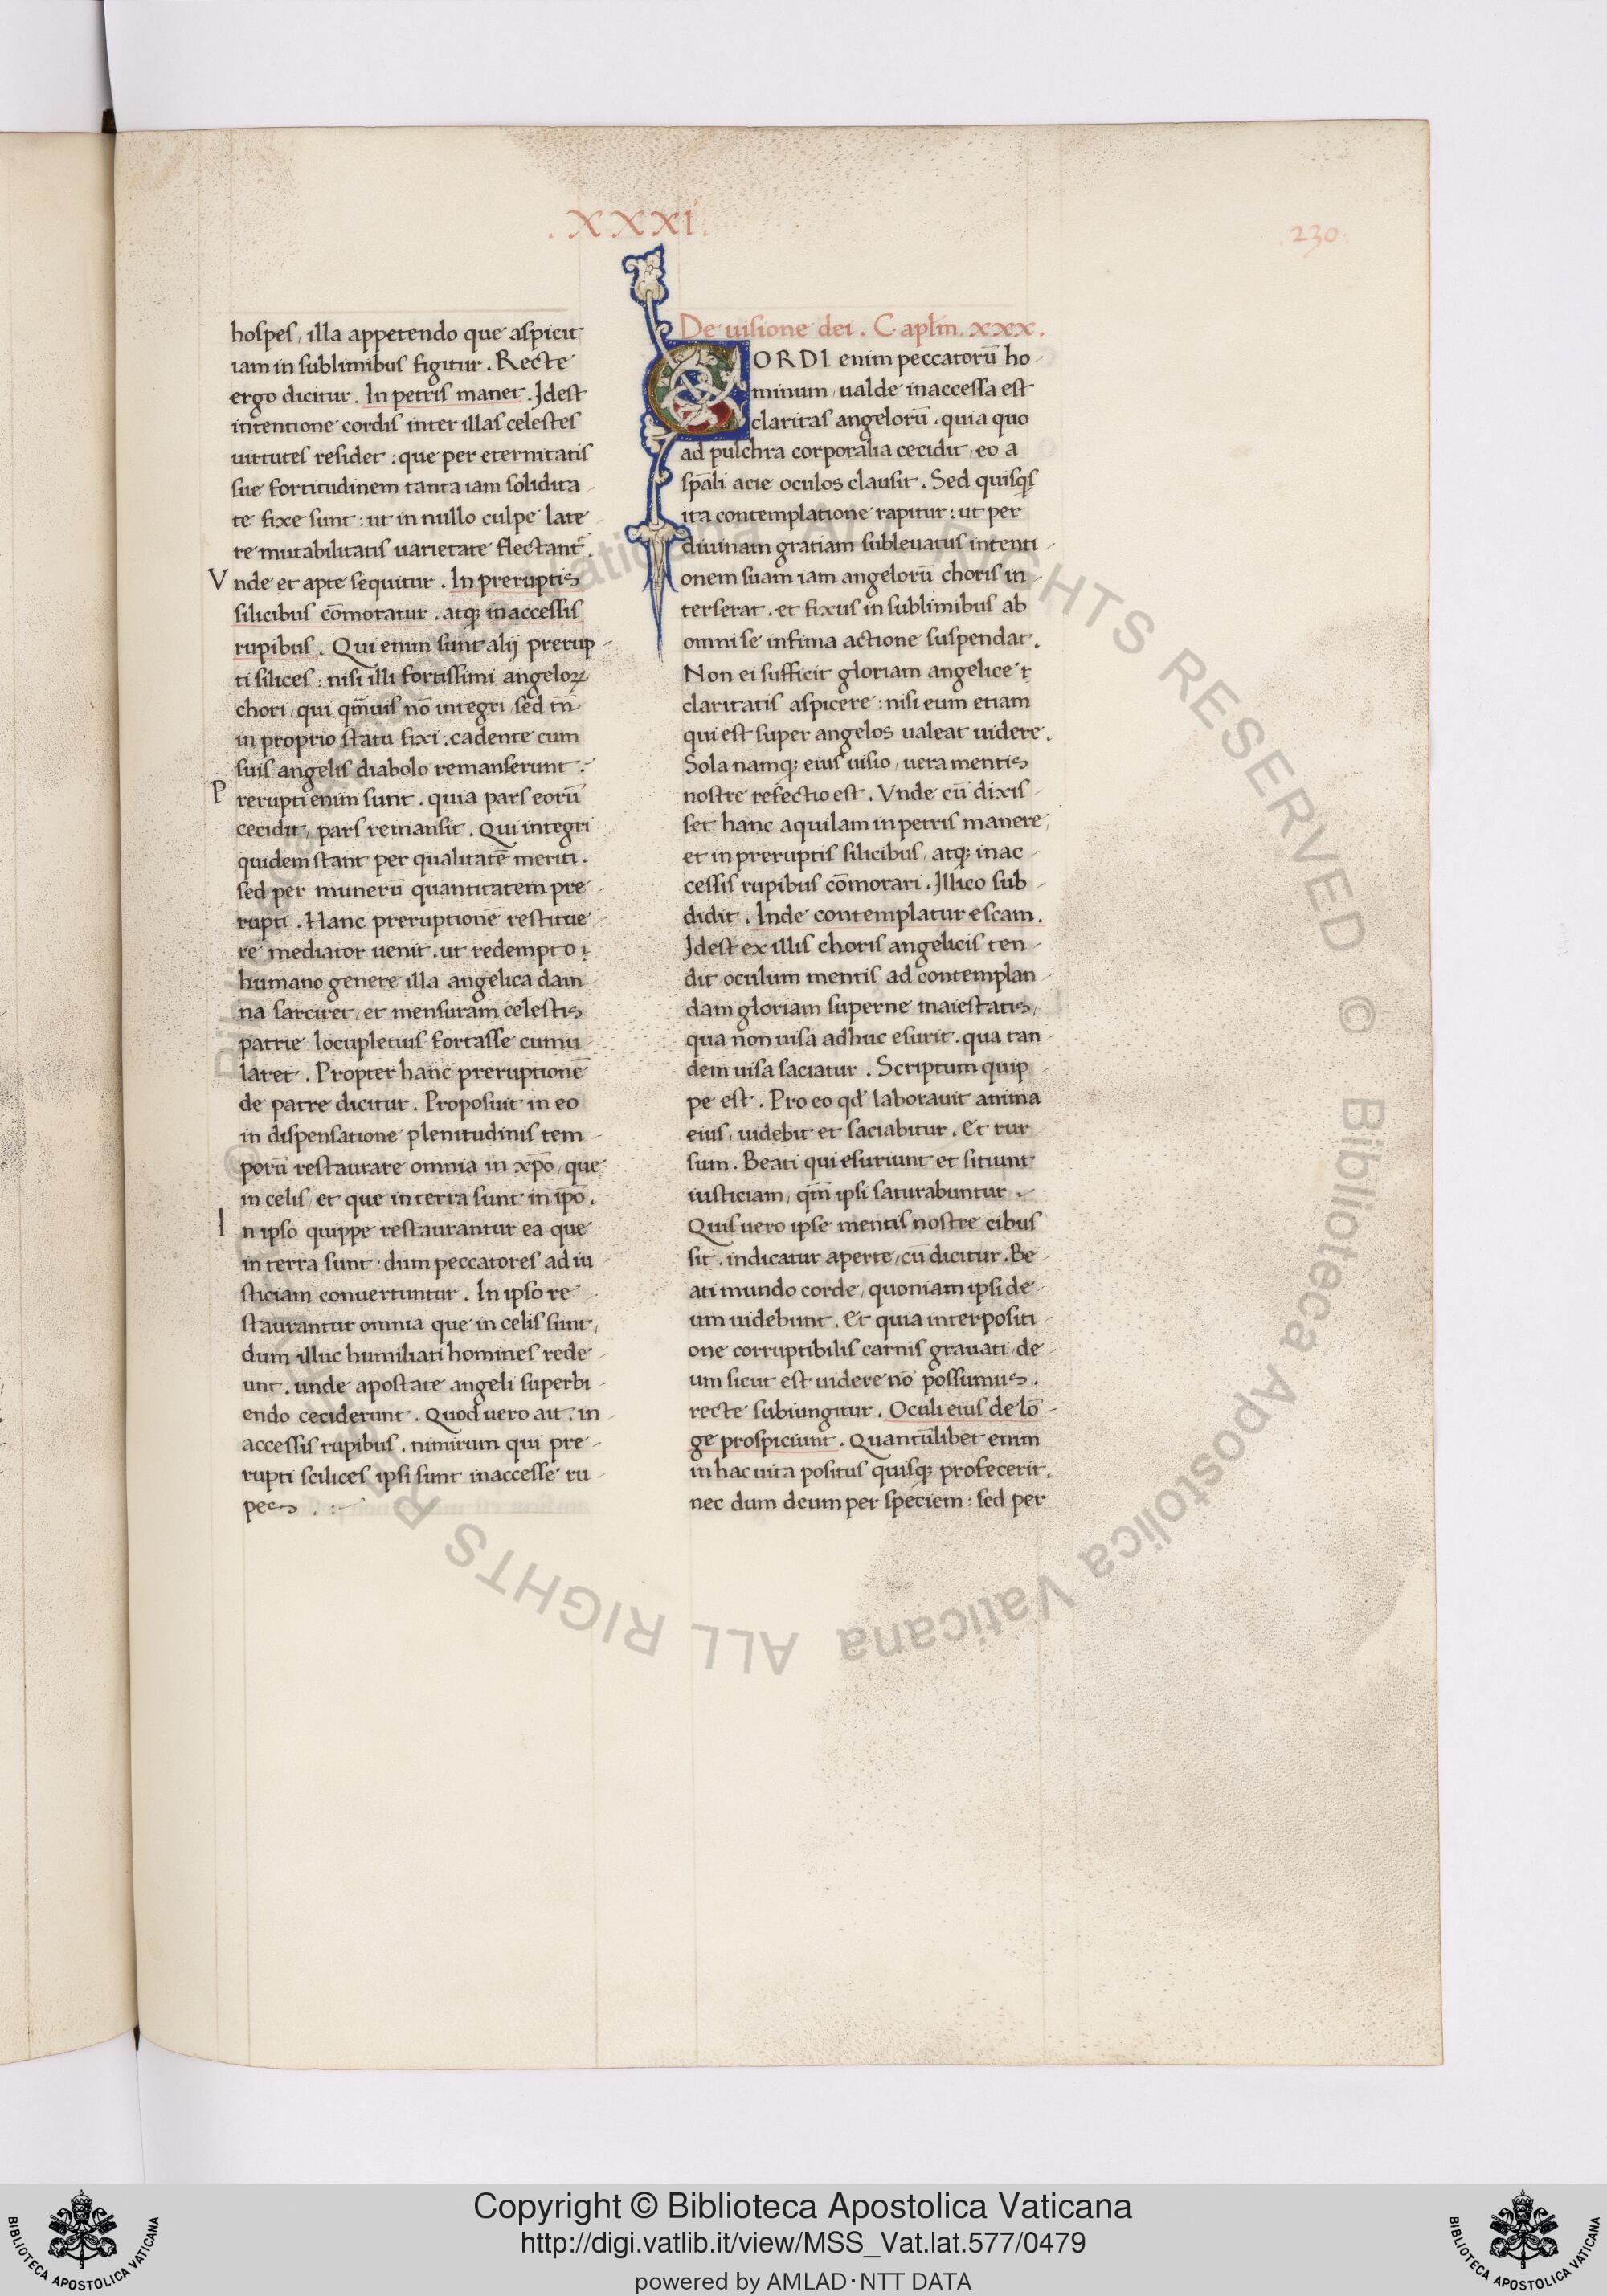 .XXXI.
230.
hospes, illa appetendo que aspicit
iam in sublimibus figitur. Recte
ergo dicitur. In petris manet. Idest
intentione cordis inter illas celestes
uirtutes residet: que per eternitatis
sue fortitudinem tanta iam solidita-
te fixe sunt: ut in nullo culpe late-
re mutabilitatis uarietate flectant᷑.
Vnde et apte sequitur. In preruptis
silicibus cōmoratur. atq; inaccessis
rupibus. Qui enim sunt alij prerup-
ti silices: nisi illi fortissimi angeloꝝ
chori, qui qm̄uis nō integri, sed tn̄
in proprio statu fixi. cadente cum
suis angelis diabolo remanserunt.
Prerupti enim sunt. quia pars eorū
cecidit, pars remansit. Qui integri
quidem stant per qualitatē meriti.
sed per munerū quantitatem pre-
rupti. Hanc preruptionē restitue-
re mediator uenit. ut redempto
humano genere illa angelica dam-
na sarciret, et mensuram celestis
patrie locupletius fortasse cumu-
laret. Propter hanc preruptionē
de patre dicitur. Proposuit in eo
in dispensatione plenitudinis tem-
porū restaurare omnia in xp̄o, que
in celis, et que in terra sunt in ip̄o.
In ipso quippe restaurantur ea que
in terra sunt: dum peccatores ad iu-
sticiam conuertuntur. In ipso re-
staurantur omnia que in celis sunt,
dum illuc humiliati homines rede-
unt. unde apostate angeli superbi-
endo ceciderunt. Quod uero ait. in-
accessis rupibus. nimirum qui pre-
rupti scilices ipsi sunt inaccesse ru-
pes.
De uisione dei. Caplm̄. xxx.
CORDI enim peccatorū ho-
minum, ualde inaccessa est
claritas angelorū. quia quo
ad pulchra corporalia cecidit, eo a
sp̄ali acie oculos clausit. Sed quisq̨s
ita contemplatione rapitur: ut per
diuinam gratiam subleuatus intenti-
onem suam iam angelorū choris in-
terserat. et fixus in sublimibus ab
omni se infima actione suspendat.
Non ei sufficit gloriam angelice
claritatis aspicere: nisi eum etiam
qui est super angelos ualeat uidere.
Sola namq; eius uisio, uera mentis
nostre refectio est. Vnde cū dixis-
set hanc aquilam in petris manere,
et in preruptis silicibus, atq; inac-
cessis rupibus cōmorari. Illico sub-
didit. Inde contemplatur escam.
Idest ex illis choris angelicis ten-
dit oculum mentis ad contemplan-
dam gloriam superne maiestatis,
qua non uisa adhuc esurit. qua tan-
dem uisa saciatur. Scriptum quip-
pe est. Pro eo qđ laborauit anima
eius, uidebit et saciabitur. Et rur-
sum. Beati qui esuriunt et sitiunt
iusticiam, qm̄ ipsi saturabuntur.
Quis uero ipse mentis nostre cibus
sit. indicatur aperte, cū dicitur. Be-
ati mundo corde, quoniam ipsi de-
um uidebunt. Et quia interpositi-
one corruptibilis carnis grauati, de-
um sicut est uidere nō possumus.
recte subiungitur. Oculi eius de lō-
ge prospiciunt. Quantūlibet enim
in hac uita positus quisq; profecerit.
nec dum deum per speciem: sed per
© Biblioteca Apostolica Vaticana ALL RIGHTS RESERVED
© Biblioteca Apostolica Vaticana ALL RIGHTS RESERVED
Copyright © Biblioteca Apostolica Vaticana
http://digi.vatlib.it/view/MSS_Vat.lat.577/0479
powered by AMLAD·NTT DATA
BIBLIOTECA APOSTOLICA VATICANA
BIBLIOTECA APOSTOLICA VATICANA